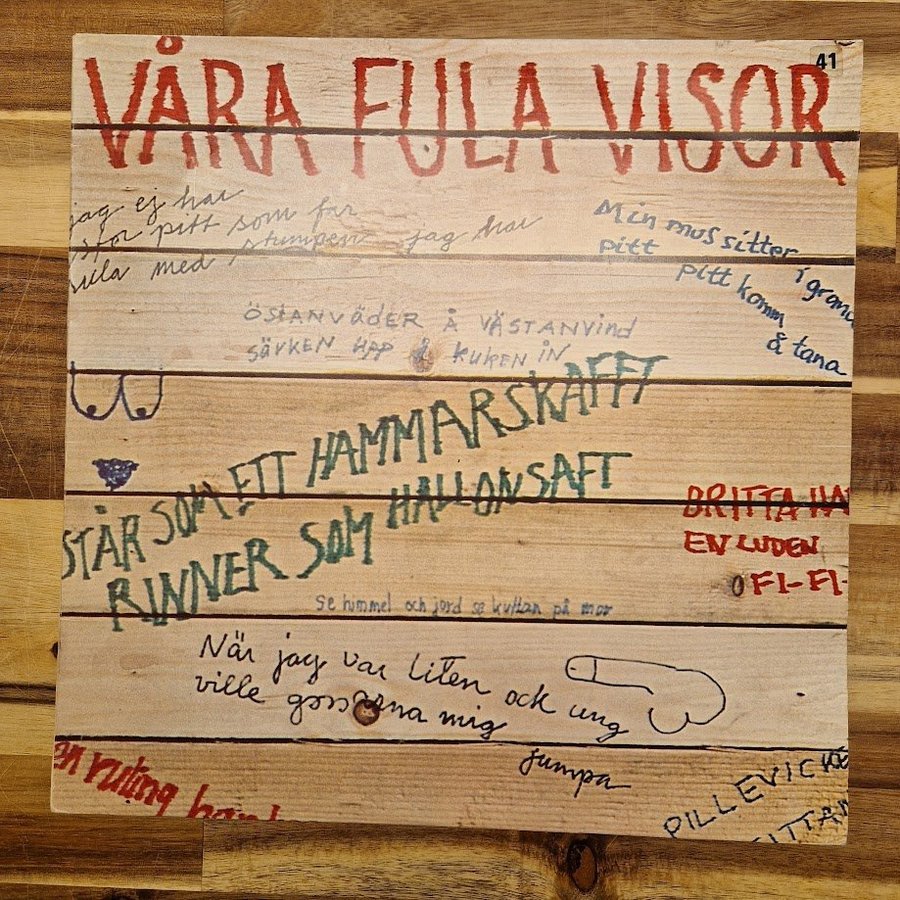 VÅRA FULA VISOR
41
jag ej har
stor pitt som far
med stumpen jag har
Min mus sitter i gran
pitt pitt komm
å tana
ÖSTANVÄDER Å VÄSTANVIND
SÄVKEN UPP Å KUKEN IN
STÅR SOM ETT HAMMARSKAFFT
RINNER SOM HALLONSAFT
BRITTA HA
EN LUDEN
FI-FI-
Se himmel och jord se kuttan på mor
När jag var liten ock ung
ville gossarna mig
jumpa
en ruting
PILLEVICK
FITTAN